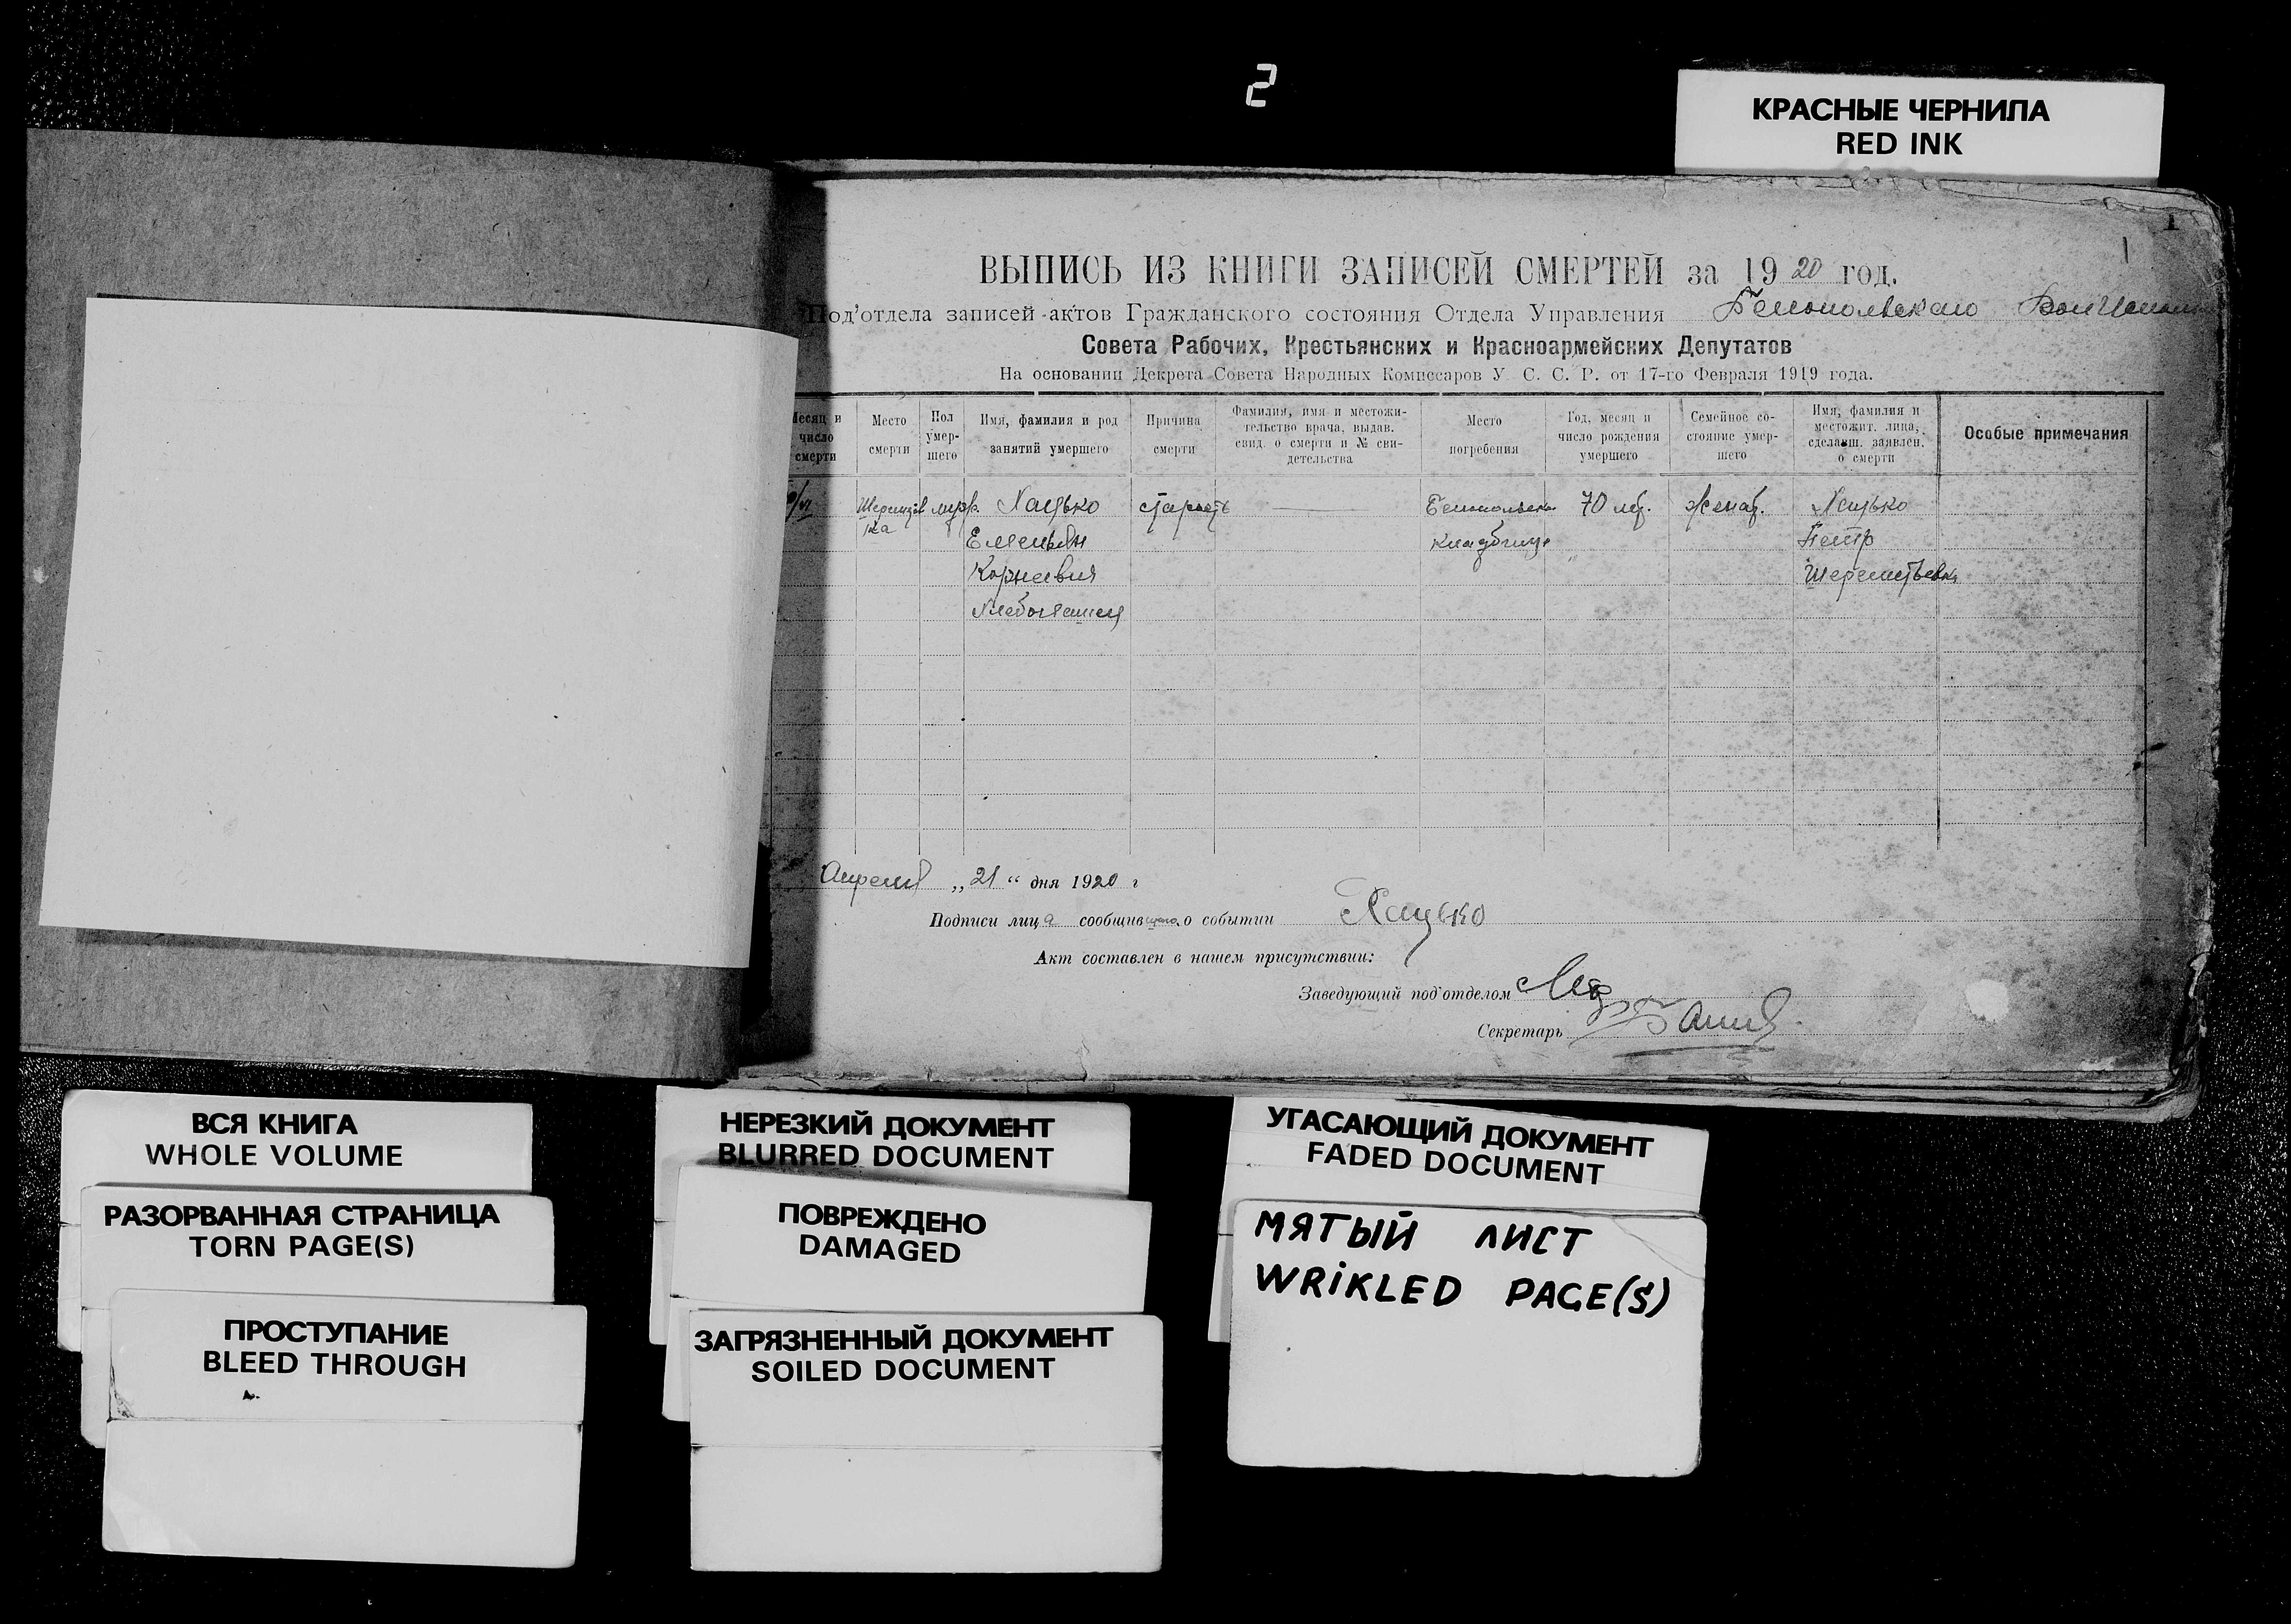 2
КРАСНЫЕ ЧЕРНИЛА
RED INK
1
1
ВЫПИСЬ ИЗ КНИГИ ЗАПИСЕЙ СМЕРТЕЙ за 1920 год.
Под'отдела записей актов Гражданского состояния Отдела Управления
Совета Рабочих, Крестьянских и Красноармейских Депутатов
На основании Декрета Совета Народных Комиссаров У. С. С. Р. от 17-го Февраля 1919 года.
Месяц и число смерти
Место смерти
Пол умер-
шего
Имя, фамилия и род занятий умершего
Причина смерти
Фамилия, имя и местожи-
тельство врача, выдав.
свид. о смерти и № сви-
детельства
Место погребения
Год, месяц и
число рождения
умершего
Семейное со-
стояние умер-
шего
Имя, фамилия и
местожит. лица,
сделавш. заявлен.
о смерти
Особые примечания
Хацько старость 70 лет. женат. Хацько
Емельян кладбище Петр
Корнеевич
Апреля „21“ дня 1920 г
Подписи лица сообщившего о событии Хацько
Акт составлен в нашем присутствии:
Заведующий под'отделом
Секретарь
ВСЯ КНИГА
WHOLE VOLUME
РАЗОРВАННАЯ СТРАНИЦА
TORN PAGE(S)
ПРОСТУПАНИЕ
BLEED THROUGH
НЕРЕЗКИЙ ДОКУМЕНТ
BLURRED DOCUMENT
ПОВРЕЖДЕНО
DAMAGED
ЗАГРЯЗНЕННЫЙ ДОКУМЕНТ
SOILED DOCUMENT
УГАСАЮЩИЙ ДОКУМЕНТ
FADED DOCUMENT
МЯТЫЙ ЛИСТ
WRIKLED PAGE(S)